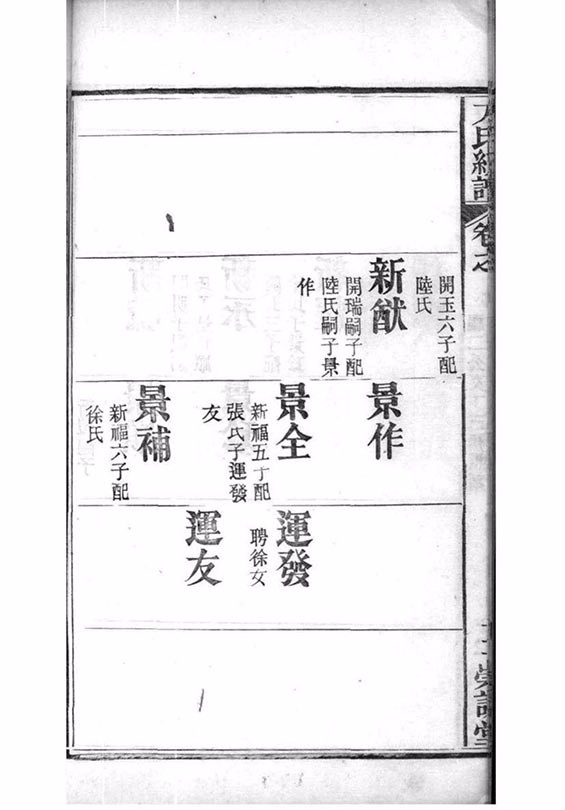 氏
卷之
開玉六子配
陸氏
新猷
開瑞嗣子配
陸氏嗣子景
作
景作
景全
新福五子配
張氏子運發
友
景補
新福六子配
徐氏
運發
聘徐女
運友